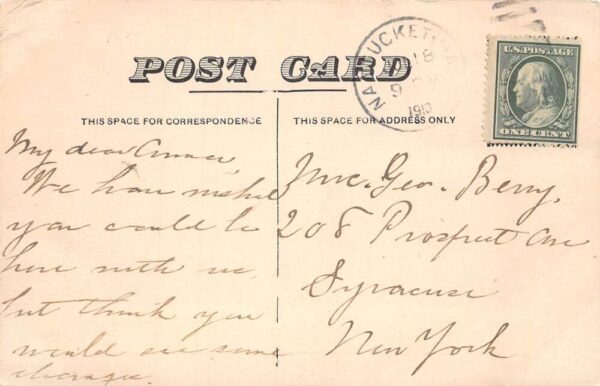 POST CARD
NANTUCKET
18
9
1910
U.S. POSTAGE
ONE CENT
THIS SPACE FOR CORRESPONDENCE
THIS SPACE FOR ADDRESS ONLY
My dear
We have wished
you could be
here with us,
but think you
would see some
changes.
Geo. Berry,
208 Prospect Ave
Syracuse
New York